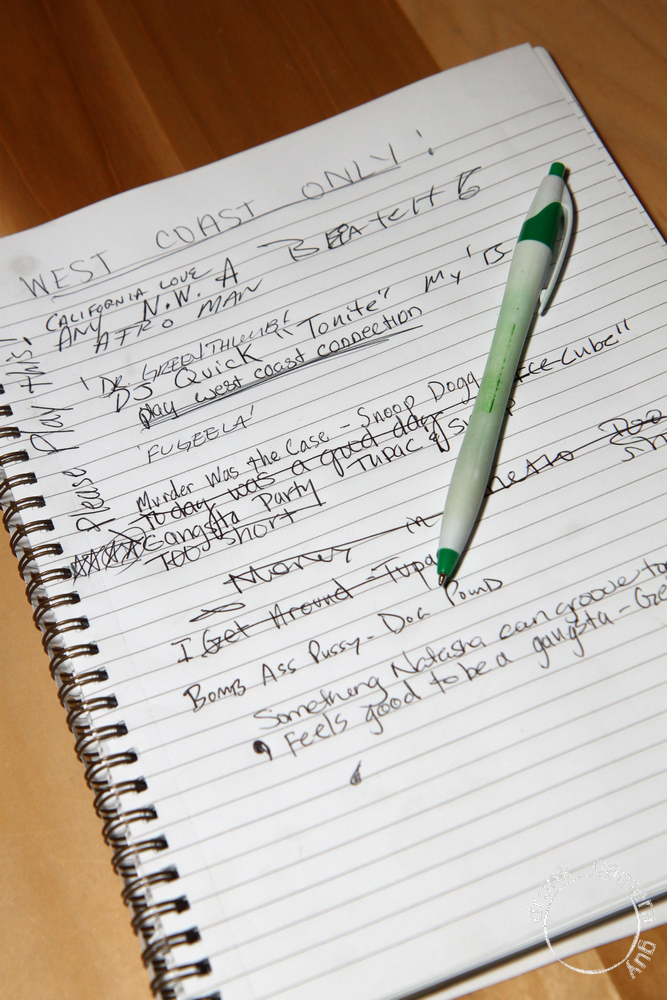 WEST COAST ONLY!
BEIATCHES
CALIFORNIA LOVE
ANY N.W.A
AFRO MAN
Please Play this!
'DR. GREENTHUMB'
DJ Quick "Tonite" My
play west coast connection
'FUGEELA'
Murder Was the Case - Snoop Dogg
Today was a good day "Ice-Cube"
Gangsta Party Tupac & Snoop
TOO Short
Money in
I Get Around - Tupa
BOMB ASS PUSSY - DOG POUND
Something Natasha can groove to
Feels good to be a gangsta - Ge
drunk camera guy